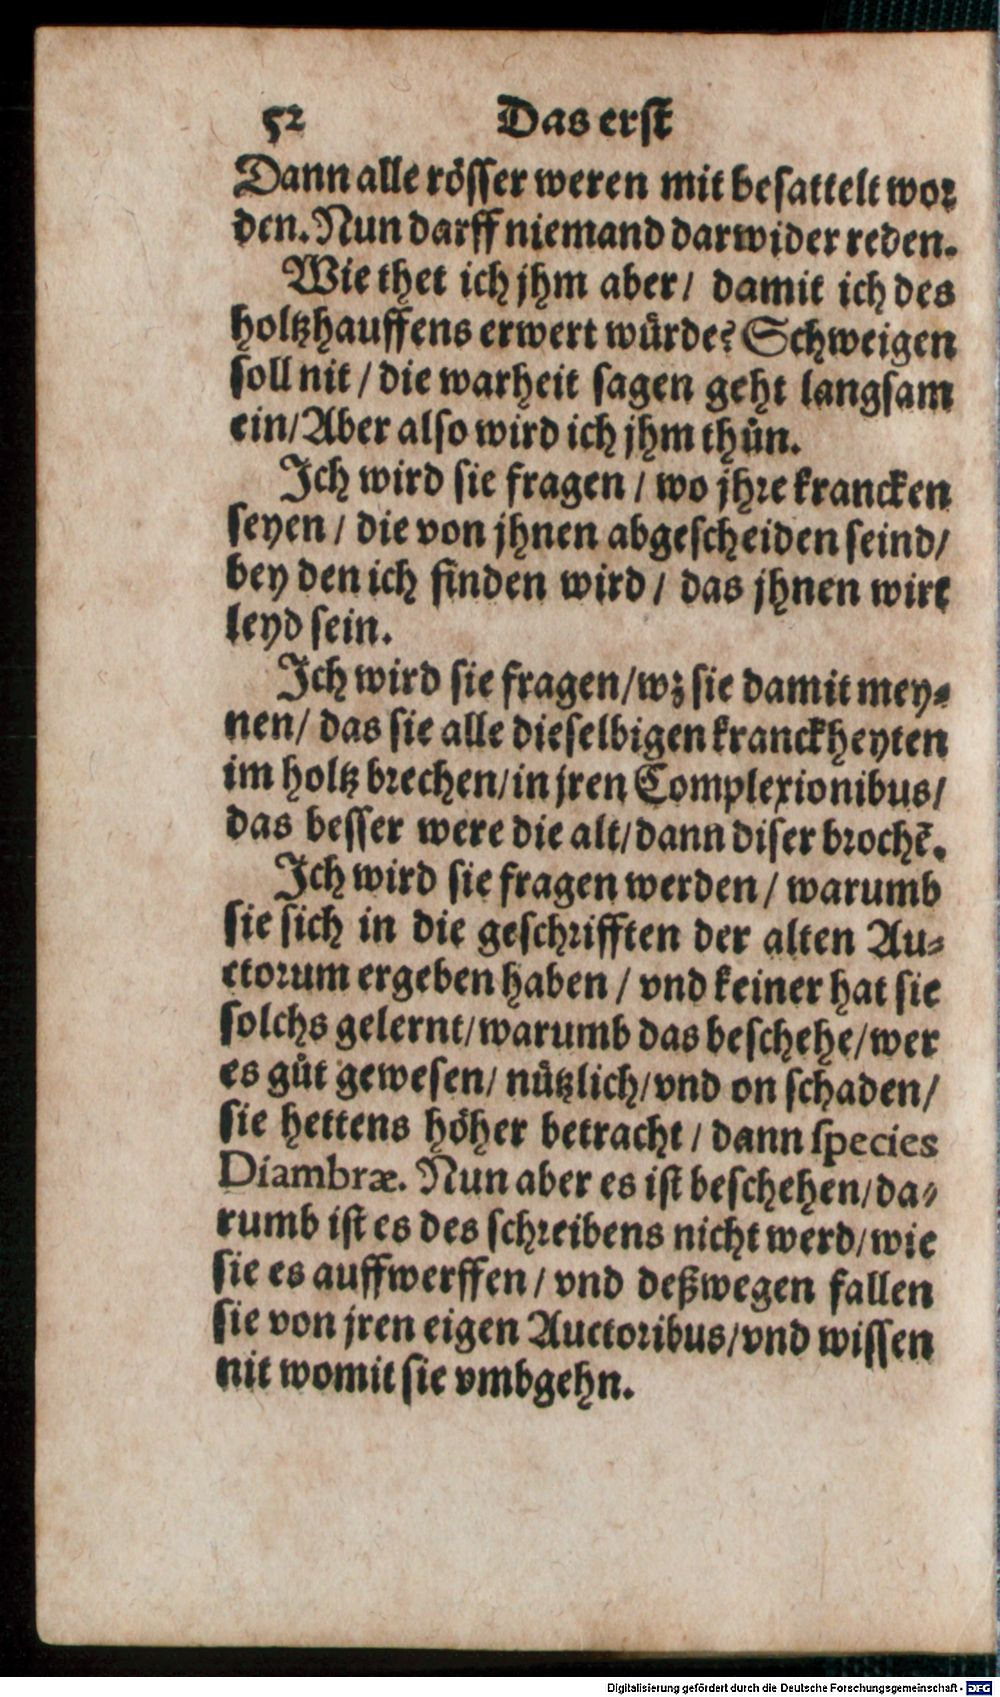 52 Das erst
Dann alle rösser weren mit besattelt wor
den. Nun darff niemand darwider reden.
Wie thet ich jhm aber/ damit ich des
holtzhauffens erwert wůrde? Schweigen
soll nit / die warheit sagen geht langsam
ein/ Aber also wird ich jhm thůn.
Ich wird sie fragen / wo jhre krancken
seyen / die von jhnen abgescheiden seind/
bey den ich finden wird / das jhnen wirt
leyd sein.
Ich wird sie fragen/wz sie damit mey⸗
nen/ das sie alle dieselbigen kranckheyten
im holtz brechen/in jren Complexionibus/
das besser were die alt/dann diser brochē.
Ich wird sie fragen werden / warumb
sie sich in die geschrifften der alten Au⸗
ctorum ergeben haben / vnd keiner hat sie
solchs gelernt/warumb das beschehe/wer
es gůt gewesen/ nůtzlich/vnd on schaden/
sie hettens höher betracht / dann species
Diambræ. Nun aber es ist beschehen/da⸗
rumb ist es des schreibens nicht werd/wie
sie es auffwerffen / vnd deßwegen fallen
sie von jren eigen Auctoribus/vnd wissen
nit womit sie vmbgehn.
Digitalisierung gefördert durch die Deutsche Forschungsgemeinschaft - DFG